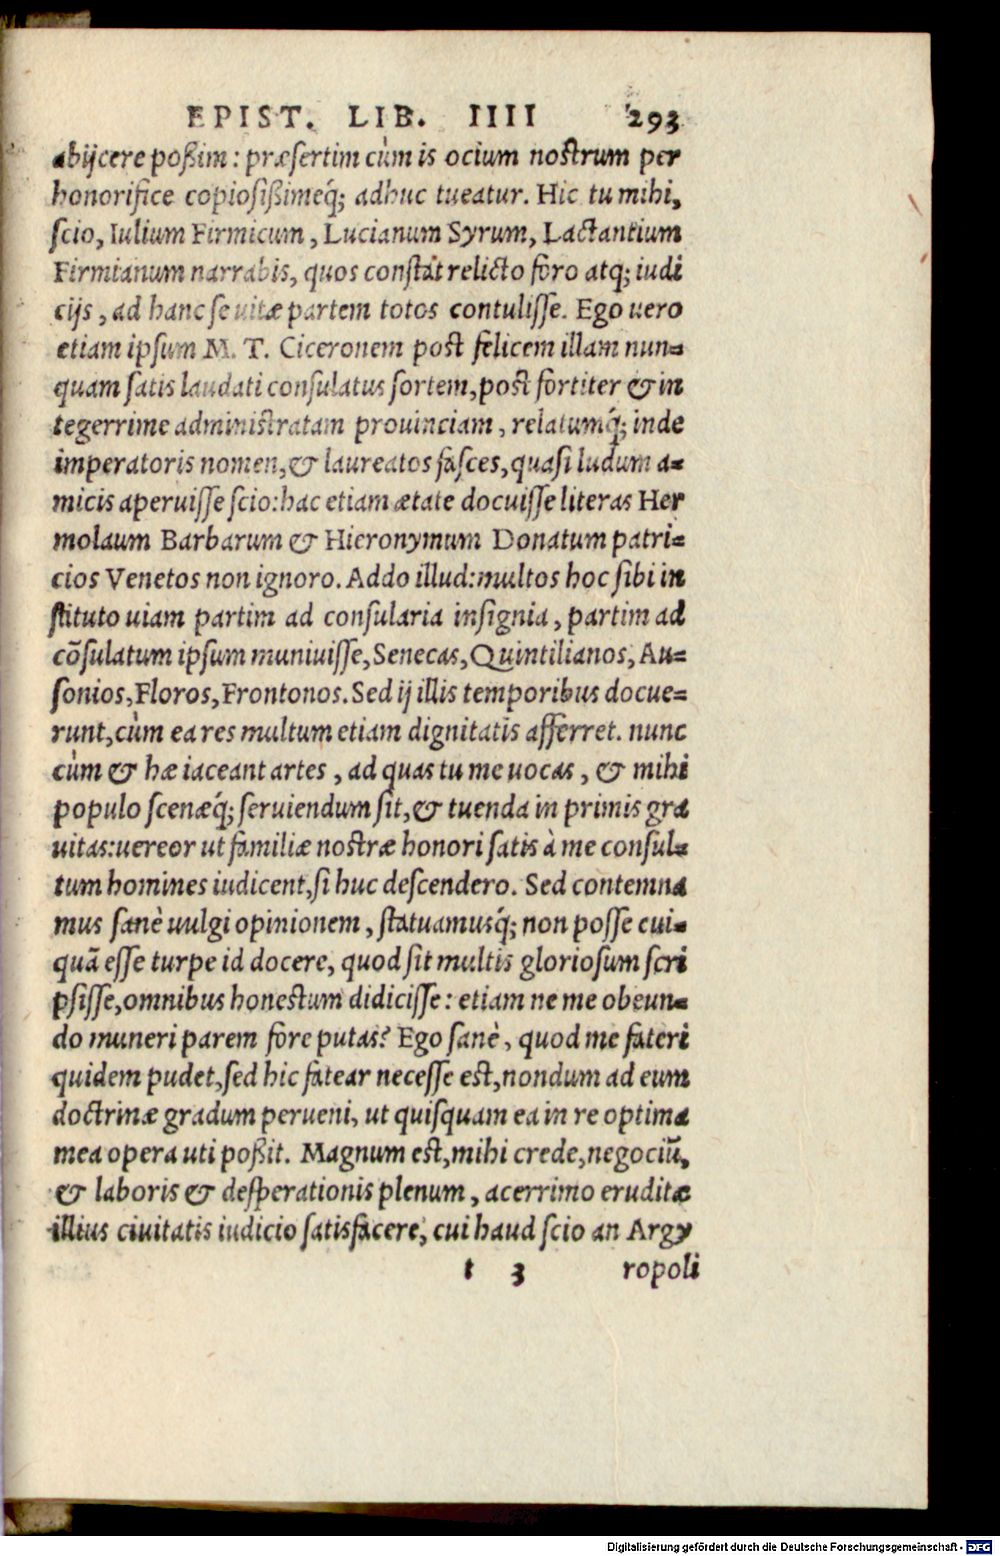 EPIST. LIB. IIII 293
abijcere poßim: præsertim cùm is ocium nostrum per
honorifice copiosißimeq́; adhuc tueatur. Hic tu mihi,
scio, Iulium Firmicum, Lucianum Syrum, Lactantium
Firmianum narrabis, quos constat relicto foro atq; iudi
cijs, ad hanc se uitæ partem totos contulisse. Ego uero
etiam ipsum M. T. Ciceronem post felicem illam nun-
quam satis laudati consulatus sortem, post fortiter & in
tegerrime administratam prouinciam, relatumq́; inde
imperatoris nomen, & laureatos fasces, quasi ludum a-
micis aperuisse scio: hac etiam ætate docuisse literas Her
molaum Barbarum & Hieronymum Donatum patri-
cios Venetos non ignoro. Addo illud: multos hoc sibi in
stituto uiam partim ad consularia insignia, partim ad
cōsulatum ipsum muniuisse, Senecas, Quintilianos, Au-
sonios, Floros, Frontonos. Sed ij illis temporibus docue-
runt, cùm ea res multum etiam dignitatis afferret. nunc
cùm & hæ iaceant artes, ad quas tu me uocas, & mihi
populo scenæq́; seruiendum sit, & tuenda in primis gra
uitas: uereor ut familiæ nostræ honori satis à me consul-
tum homines iudicent, si huc descendero. Sed contemna
mus sanè uulgi opinionem, statuamusq́; non posse cui-
quā esse turpe id docere, quod sit multis gloriosum scri
psisse, omnibus honestum didicisse: etiam ne me obeun-
do muneri parem fore putas? Ego sanè, quod me fateri
quidem pudet, sed hic fatear necesse est, nondum ad eum
doctrinæ gradum perueni, ut quisquam ea in re optima
mea opera uti poßit. Magnum est, mihi crede, negociū,
& laboris & desperationis plenum, acerrimo eruditæ
illius ciuitatis iudicio satisfacere, cui haud scio an Argy
t 3 ropoli
Digitalisierung gefördert durch die Deutsche Forschungsgemeinschaft - DFG